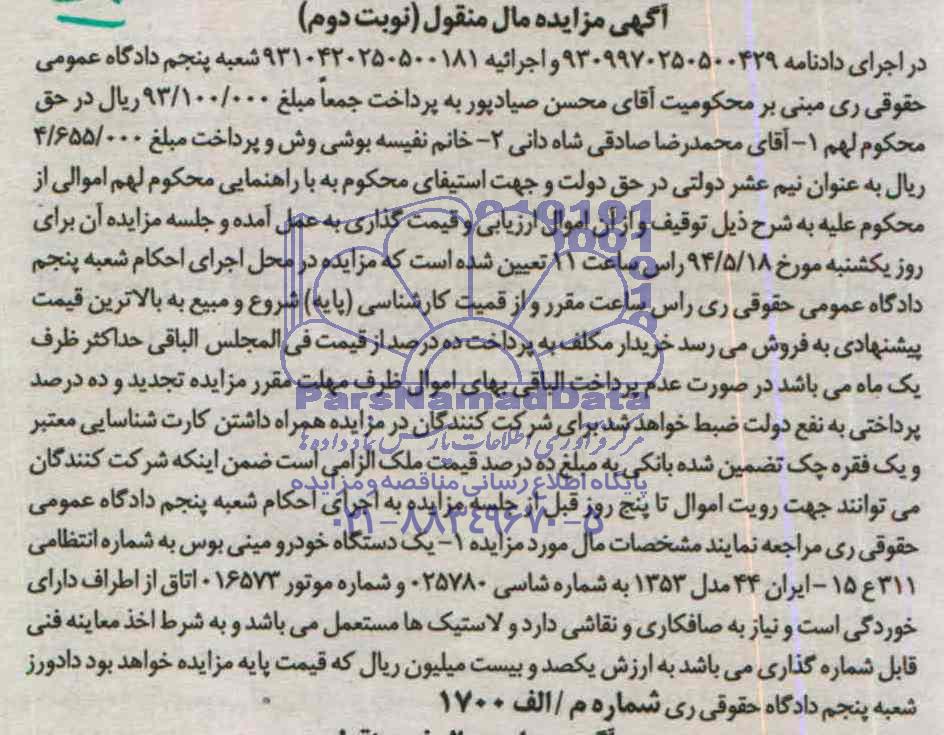 آگهی مزایده مال منقول (نوبت دوم)
در اجرای دادنامه ۹۳۰۹۹۷۰۲۵۰۵۰۰۴۲۹ و اجرائیه ۹۳۱۰۴۲۰۲۵۰۵۰۰۱۸۱ شعبه پنجم دادگاه عمومی
حقوقی ری مبنی بر محکومیت آقای محسن صیادپور به پرداخت جمعاً مبلغ ۹۳/۱۰۰/۰۰۰ ریال در حق
محکوم لهم ۱- آقای محمدرضا صادقی شاه دانی ۲- خانم نفیسه بوشی وش و پرداخت مبلغ ۴/۶۵۵/۰۰۰
ریال به عنوان نیم عشر دولتی در حق دولت و جهت استیفای محکوم به با راهنمایی محکوم لهم اموالی از
محکوم علیه به شرح ذیل توقیف و از آن اموال ارزیابی و قیمت گذاری به عمل آمده و جلسه مزایده آن برای
روز یکشنبه مورخ ۹۴/۵/۱۸ راس ساعت ۱۱ تعیین شده است که مزایده در محل اجرای احکام شعبه پنجم
دادگاه عمومی حقوقی ری راس ساعت مقرر و از قمیت کارشناسی (پایه) شروع و مبیع به بالاترین قیمت
پیشنهادی به فروش می رسد خریدار مکلف به پرداخت ده درصد از قیمت فی المجلس الباقی حداکثر ظرف
یک ماه می باشد در صورت عدم پرداخت الباقی بهای اموال ظرف مهلت مقرر مزایده تجدید و ده درصد
پرداختی به نفع دولت ضبط خواهد شد برای شرکت کنندگان در مزایده همراه داشتن کارت شناسایی معتبر
و یک فقره چک تضمین شده بانکی به مبلغ ده درصد قیمت ملک الزامی است ضمن اینکه شرکت کنندگان
می توانند جهت رویت اموال تا پنج روز قبل از جلسه مزایده به اجرای احکام شعبه پنجم دادگاه عمومی
حقوقی ری مراجعه نمایند مشخصات مال مورد مزایده ۱- یک دستگاه خودرو مینی بوس به شماره انتظامی
۳۱۱ع ۱۵ - ایران ۴۴ مدل ۱۳۵۳ به شماره شاسی ۰۲۵۷۸۰ و شماره موتور ۰۱۶۵۷۳ اتاق از اطراف دارای
خوردگی است و نیاز به صافکاری و نقاشی دارد و لاستیک ها مستعمل می باشد و به شرط اخذ معاینه فنی
قابل شماره گذاری می باشد به ارزش یکصد و بیست میلیون ریال که قیمت پایه مزایده خواهد بود دادورز
شعبه پنجم دادگاه حقوقی ری شماره م /الف ۱۷۰۰
ParsNamadData
مرکز فرآوری اطلاعات پارس نماد داده ها
پایگاه اطلاع رسانی مناقصه و مزایده
۰۲۱-۸۸۳۴۹۶۷۰-۵